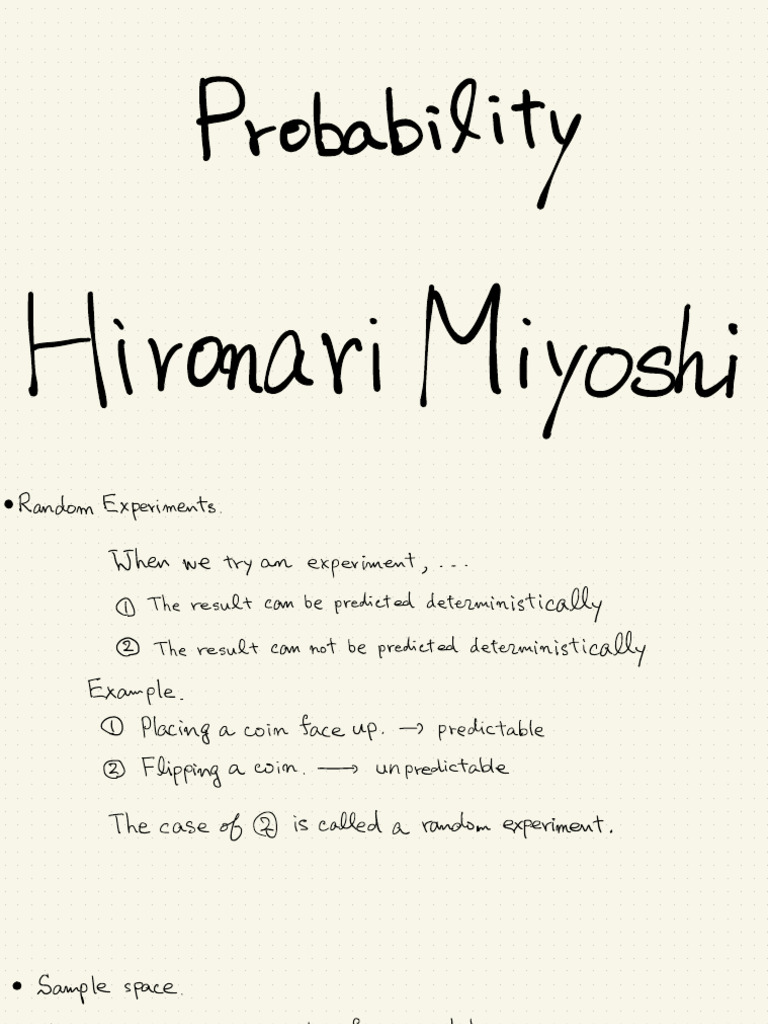 Probability
Hironari Miyoshi
• Random Experiments.
When we try an experiment, ...
① The result can be predicted deterministically
② The result can not be predicted deterministically
Example.
① Placing a coin face up. → predictable
② Flipping a coin. → unpredictable
The case of ② is called a random experiment.
• Sample space.